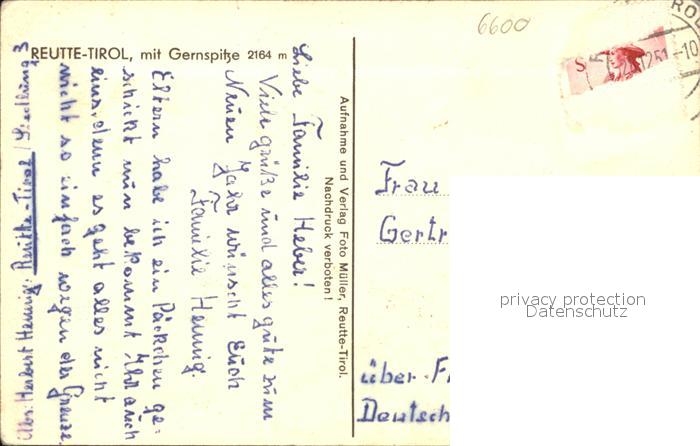 6600
REUTTE-TIROL, mit Gernspitze 2164 m
Liebe Familie Heber!
Viele grüße und alles gute zum
Neuen Jahr wünscht Euch
Familie Hennig.
Eltern habe ich ein Päckchen ge-
schickt nun bekommt Ihr auch
eins, denn es geht alles nicht
nicht so einfach wegen der Grenze.
Abs: Herbert Hennig, Reutte-Tirol / Siedlung 3
Aufnahme und Verlag Foto Müller, Reutte-Tirol.
Nachdruck verboten!
Frau
Gertr
über Fr
Deutsch
privacy protection
Datenschutz